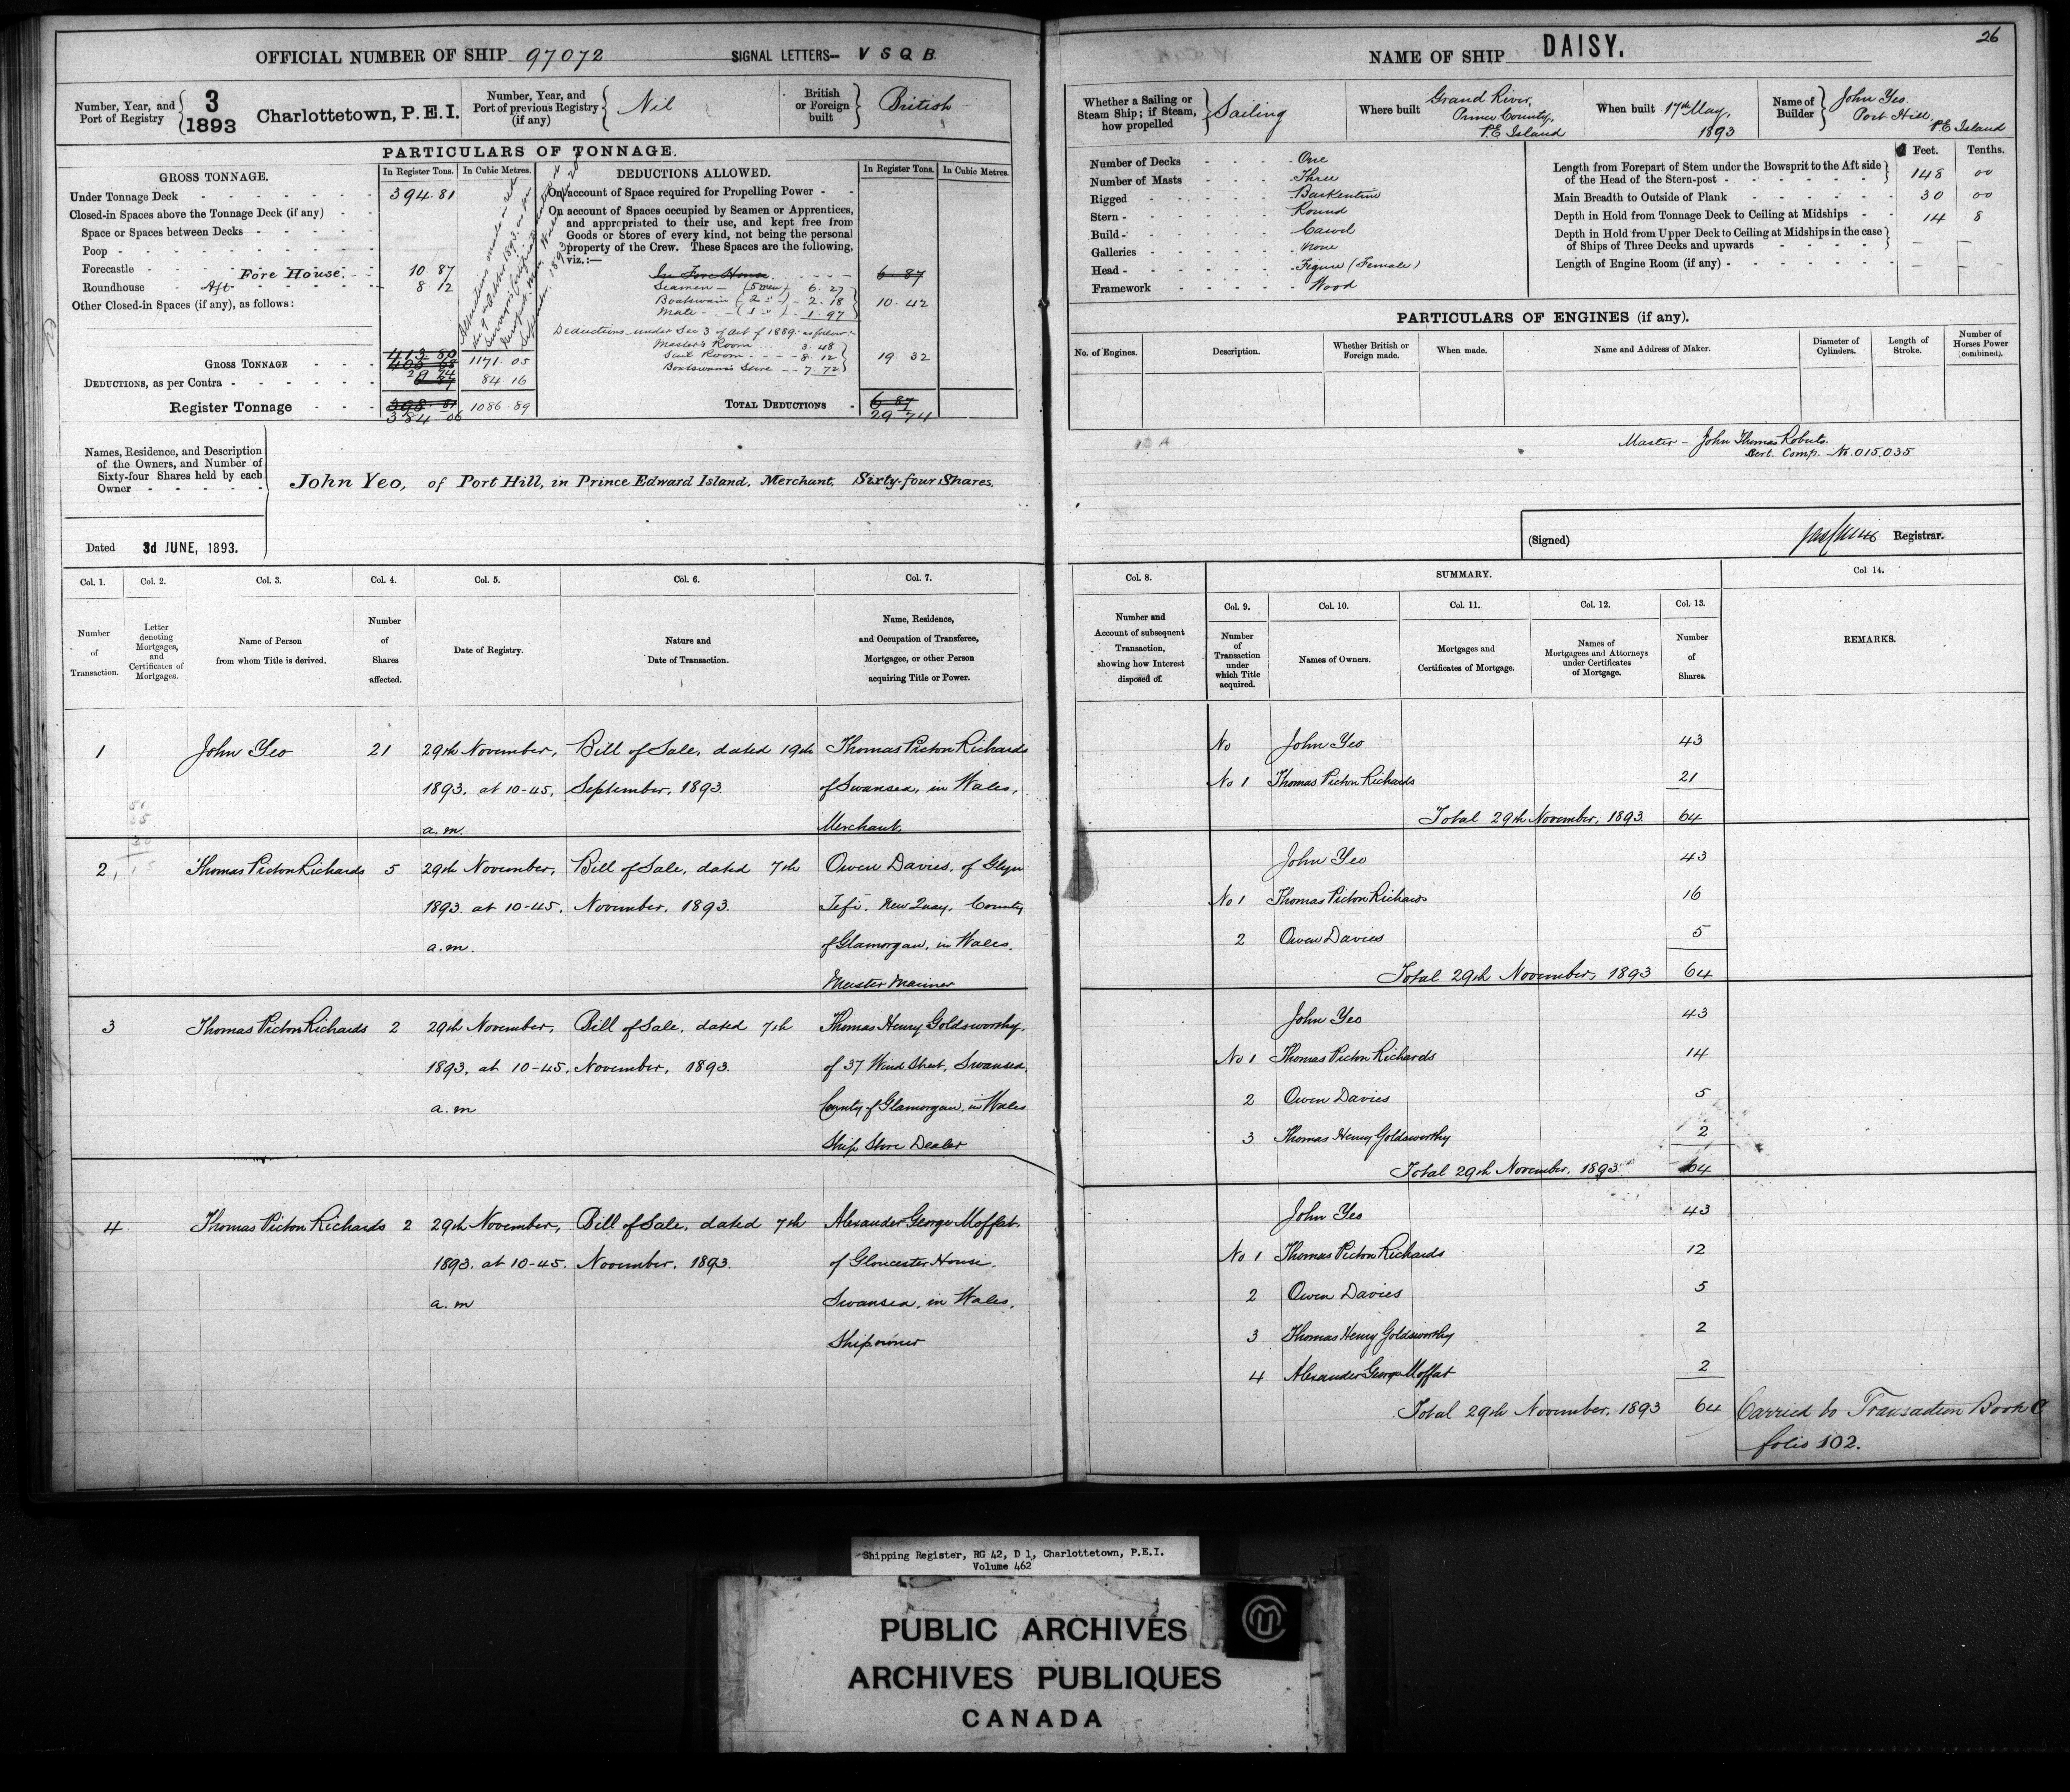 26
OFFICIAL NUMBER OF SHIP 97072 SIGNAL LETTERS— V S Q B.
NAME OF SHIP DAISY.
Number, Year, and Port of Registry 3 1893 Charlottetown, P.E.I.
Number, Year, and Port of previous Registry (if any) Nil
British or Foreign built British
Whether a Sailing or Steam Ship; if Steam, how propelled Sailing
Where built Grand River, Prince County, P.E. Island
When built 17th May, 1893
Name of Builder John Yeo. Port Hill, P.E Island
PARTICULARS OF TONNAGE.
GROSS TONNAGE.
In Register Tons. In Cubic Metres.
Under Tonnage Deck 394.81
Closed-in Spaces above the Tonnage Deck (if any)
Space or Spaces between Decks
Poop
Forecastle Fore House. 10.87
Roundhouse Aft 8 12
Other Closed-in Spaces (if any), as follows:
GROSS TONNAGE 413 80 1171.05
DEDUCTIONS, as per Contra 29 74 84 16
Register Tonnage 384 06 1086.89
DEDUCTIONS ALLOWED.
In Register Tons. In Cubic Metres.
On account of Space required for Propelling Power
On account of Spaces occupied by Seamen or Apprentices,
and appropriated to their use, and kept free from
Goods or Stores of every kind, not being the personal
property of the Crew. These Spaces are the following,
viz.:—
In Fore House. 6 87
Seamen – (5 men) 6.27
Boatswain (2 ") – 2.18 10.42
Mate – (1 ") – 1.97
Deductions under Sec 3 of Act of 1889. as follow:-
Master's Room 3.48
Sail Room 8.12 19 32
Boatswain's Store 7.72
TOTAL DEDUCTIONS 6 87
29 74
Number of Decks One
Number of Masts Three
Rigged Barkentine
Stern Round
Build Carvel
Galleries None
Head Figure (Female)
Framework Wood
Feet. Tenths.
Length from Forepart of Stem under the Bowsprit to the Aft side
of the Head of the Stern-post 148 00
Main Breadth to Outside of Plank 30 00
Depth in Hold from Tonnage Deck to Ceiling at Midships 14 8
Depth in Hold from Upper Deck to Ceiling at Midships in the case
of Ships of Three Decks and upwards — —
Length of Engine Room (if any) — —
PARTICULARS OF ENGINES (if any).
No. of Engines. Description. Whether British or Foreign made. When made. Name and Address of Maker. Diameter of Cylinders. Length of Stroke. Number of Horses Power (combined).
Master – John Thomas Roberts.
Cert. Comp. No. 015.035
Names, Residence, and Description
of the Owners, and Number of
Sixty-four Shares held by each
Owner
John Yeo, of Port Hill, in Prince Edward Island. Merchant. Sixty-four Shares.
Dated 3d JUNE, 1893.
(Signed) Registrar.
Col. 1. Col. 2. Col. 3. Col. 4. Col. 5. Col. 6. Col. 7.
Number of Transaction.
Letter denoting Mortgages, and Certificates of Mortgages.
Name of Person from whom Title is derived.
Number of Shares affected.
Date of Registry.
Nature and Date of Transaction.
Name, Residence, and Occupation of Transferee, Mortgagee, or other Person acquiring Title or Power.
1 John Yeo 21 29th November, Bill of Sale, dated 19th Thomas Picton Richards
1893. at 10-45, September, 1893. of Swansea, in Wales,
a.m. Merchant.
2 Thomas Picton Richards 5 29th November, Bill of Sale, dated 7th Owen Davies, of Glyn
1893. at 10-45, November, 1893. Tefi, New Quay, County
a.m. of Glamorgan, in Wales.
Master Mariner
3 Thomas Picton Richards 2 29th November, Bill of Sale, dated 7th Thomas Henry Goldsworthy,
1893, at 10-45, November, 1893. of 37 Wind Street, Swansea,
a.m County of Glamorgan, in Wales
Ship Store Dealer
4 Thomas Picton Richards 2 29th November, Bill of Sale, dated 7th Alexander George Moffat.
1893. at 10-45. November, 1893. of Gloucester House,
a.m Swansea, in Wales,
Shipowner
Col. 8. SUMMARY. Col 14.
Col. 9. Col. 10. Col. 11. Col. 12. Col. 13.
Number and Account of subsequent Transaction, showing how Interest disposed of.
Number of Transaction under which Title acquired.
Names of Owners.
Mortgages and Certificates of Mortgage.
Names of Mortgagees and Attorneys under Certificates of Mortgage.
Number of Shares.
REMARKS.
No John Yeo 43
No 1 Thomas Picton Richards 21
Total 29th November, 1893 64
John Yeo 43
No 1 Thomas Picton Richards 16
2 Owen Davies 5
Total 29th November, 1893 64
John Yeo 43
No 1 Thomas Picton Richards 14
2 Owen Davies 5
3 Thomas Henry Goldsworthy 2
Total 29th November, 1893 64
John Yeo 43
No 1 Thomas Picton Richards 12
2 Owen Davies 5
3 Thomas Henry Goldsworthy 2
4 Alexander George Moffat 2
Total 29th November, 1893 64
Carried to Transaction Book C
folio 102.
Shipping Register, RG 42, D 1, Charlottetown, P.E.I.
Volume 462
PUBLIC ARCHIVES
ARCHIVES PUBLIQUES
CANADA